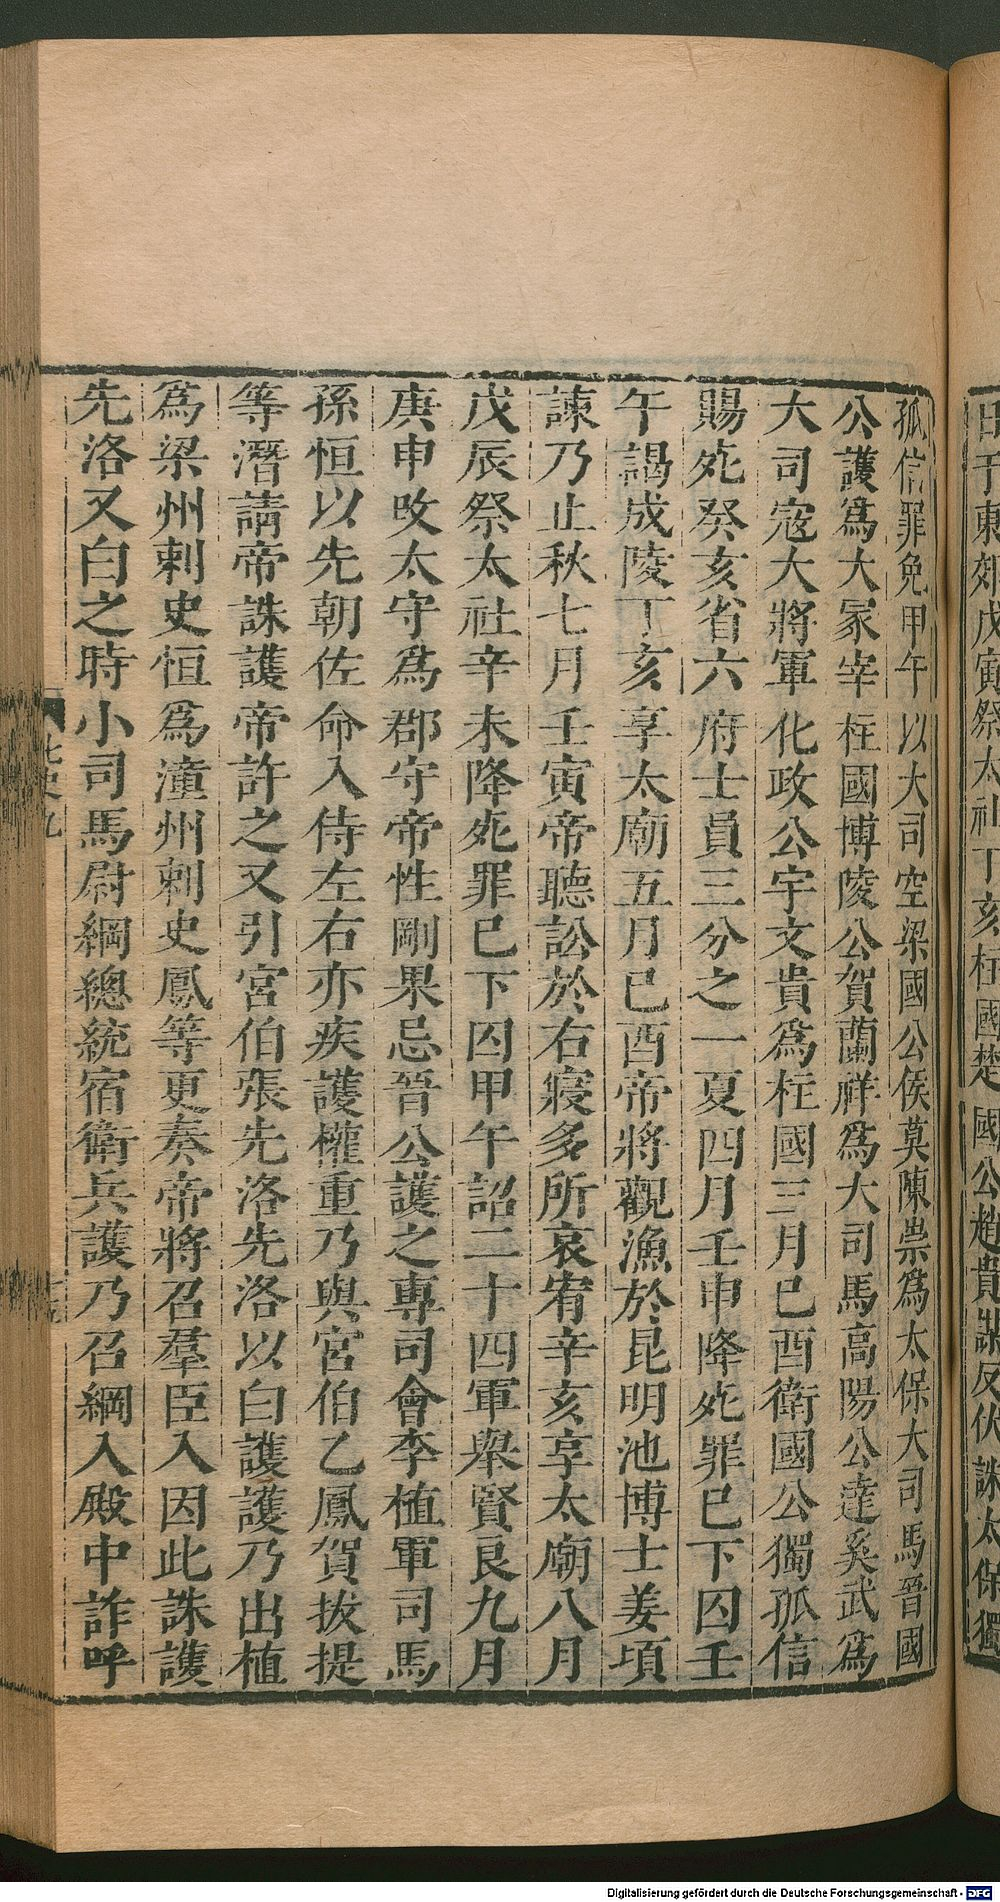 田于東郊戊寅祭太社丁亥柱國楚國公趙貴謀反伏誅太保獨
孤信罪免甲午以大司空梁國公侯莫陳崇爲太保大司馬晉國
公護爲大冢宰柱國博陵公賀蘭祥爲大司馬高陽公達奚武爲
大司寇大將軍化政公宇文貴爲柱國三月己酉衛國公獨孤信
賜死癸亥省六府士員三分之一夏四月壬申降死罪已下囚壬
午謁成陵丁亥享太廟五月己酉帝將觀漁於昆明池博士姜頊
諫乃止秋七月壬寅帝聽訟於右寢多所哀宥辛亥享太廟八月
戊辰祭太社辛未降死罪已下囚甲午詔二十四軍舉賢良九月
庚申改太守爲郡守帝性剛果忌晉公護之專司會李植軍司馬
孫恒以先朝佐命入侍左右亦疾護權重乃與宮伯乙鳳賀拔提
等潛請帝誅護帝許之又引宮伯張先洛先洛以白護護乃出植
爲梁州刺史恒爲潼州刺史鳳等更奏帝將召羣臣入因此誅護
先洛又白之時小司馬尉綱總統宿衛兵護乃召綱入殿中詐呼
北史九
Digitalisierung gefördert durch die Deutsche Forschungsgemeinschaft - DFG